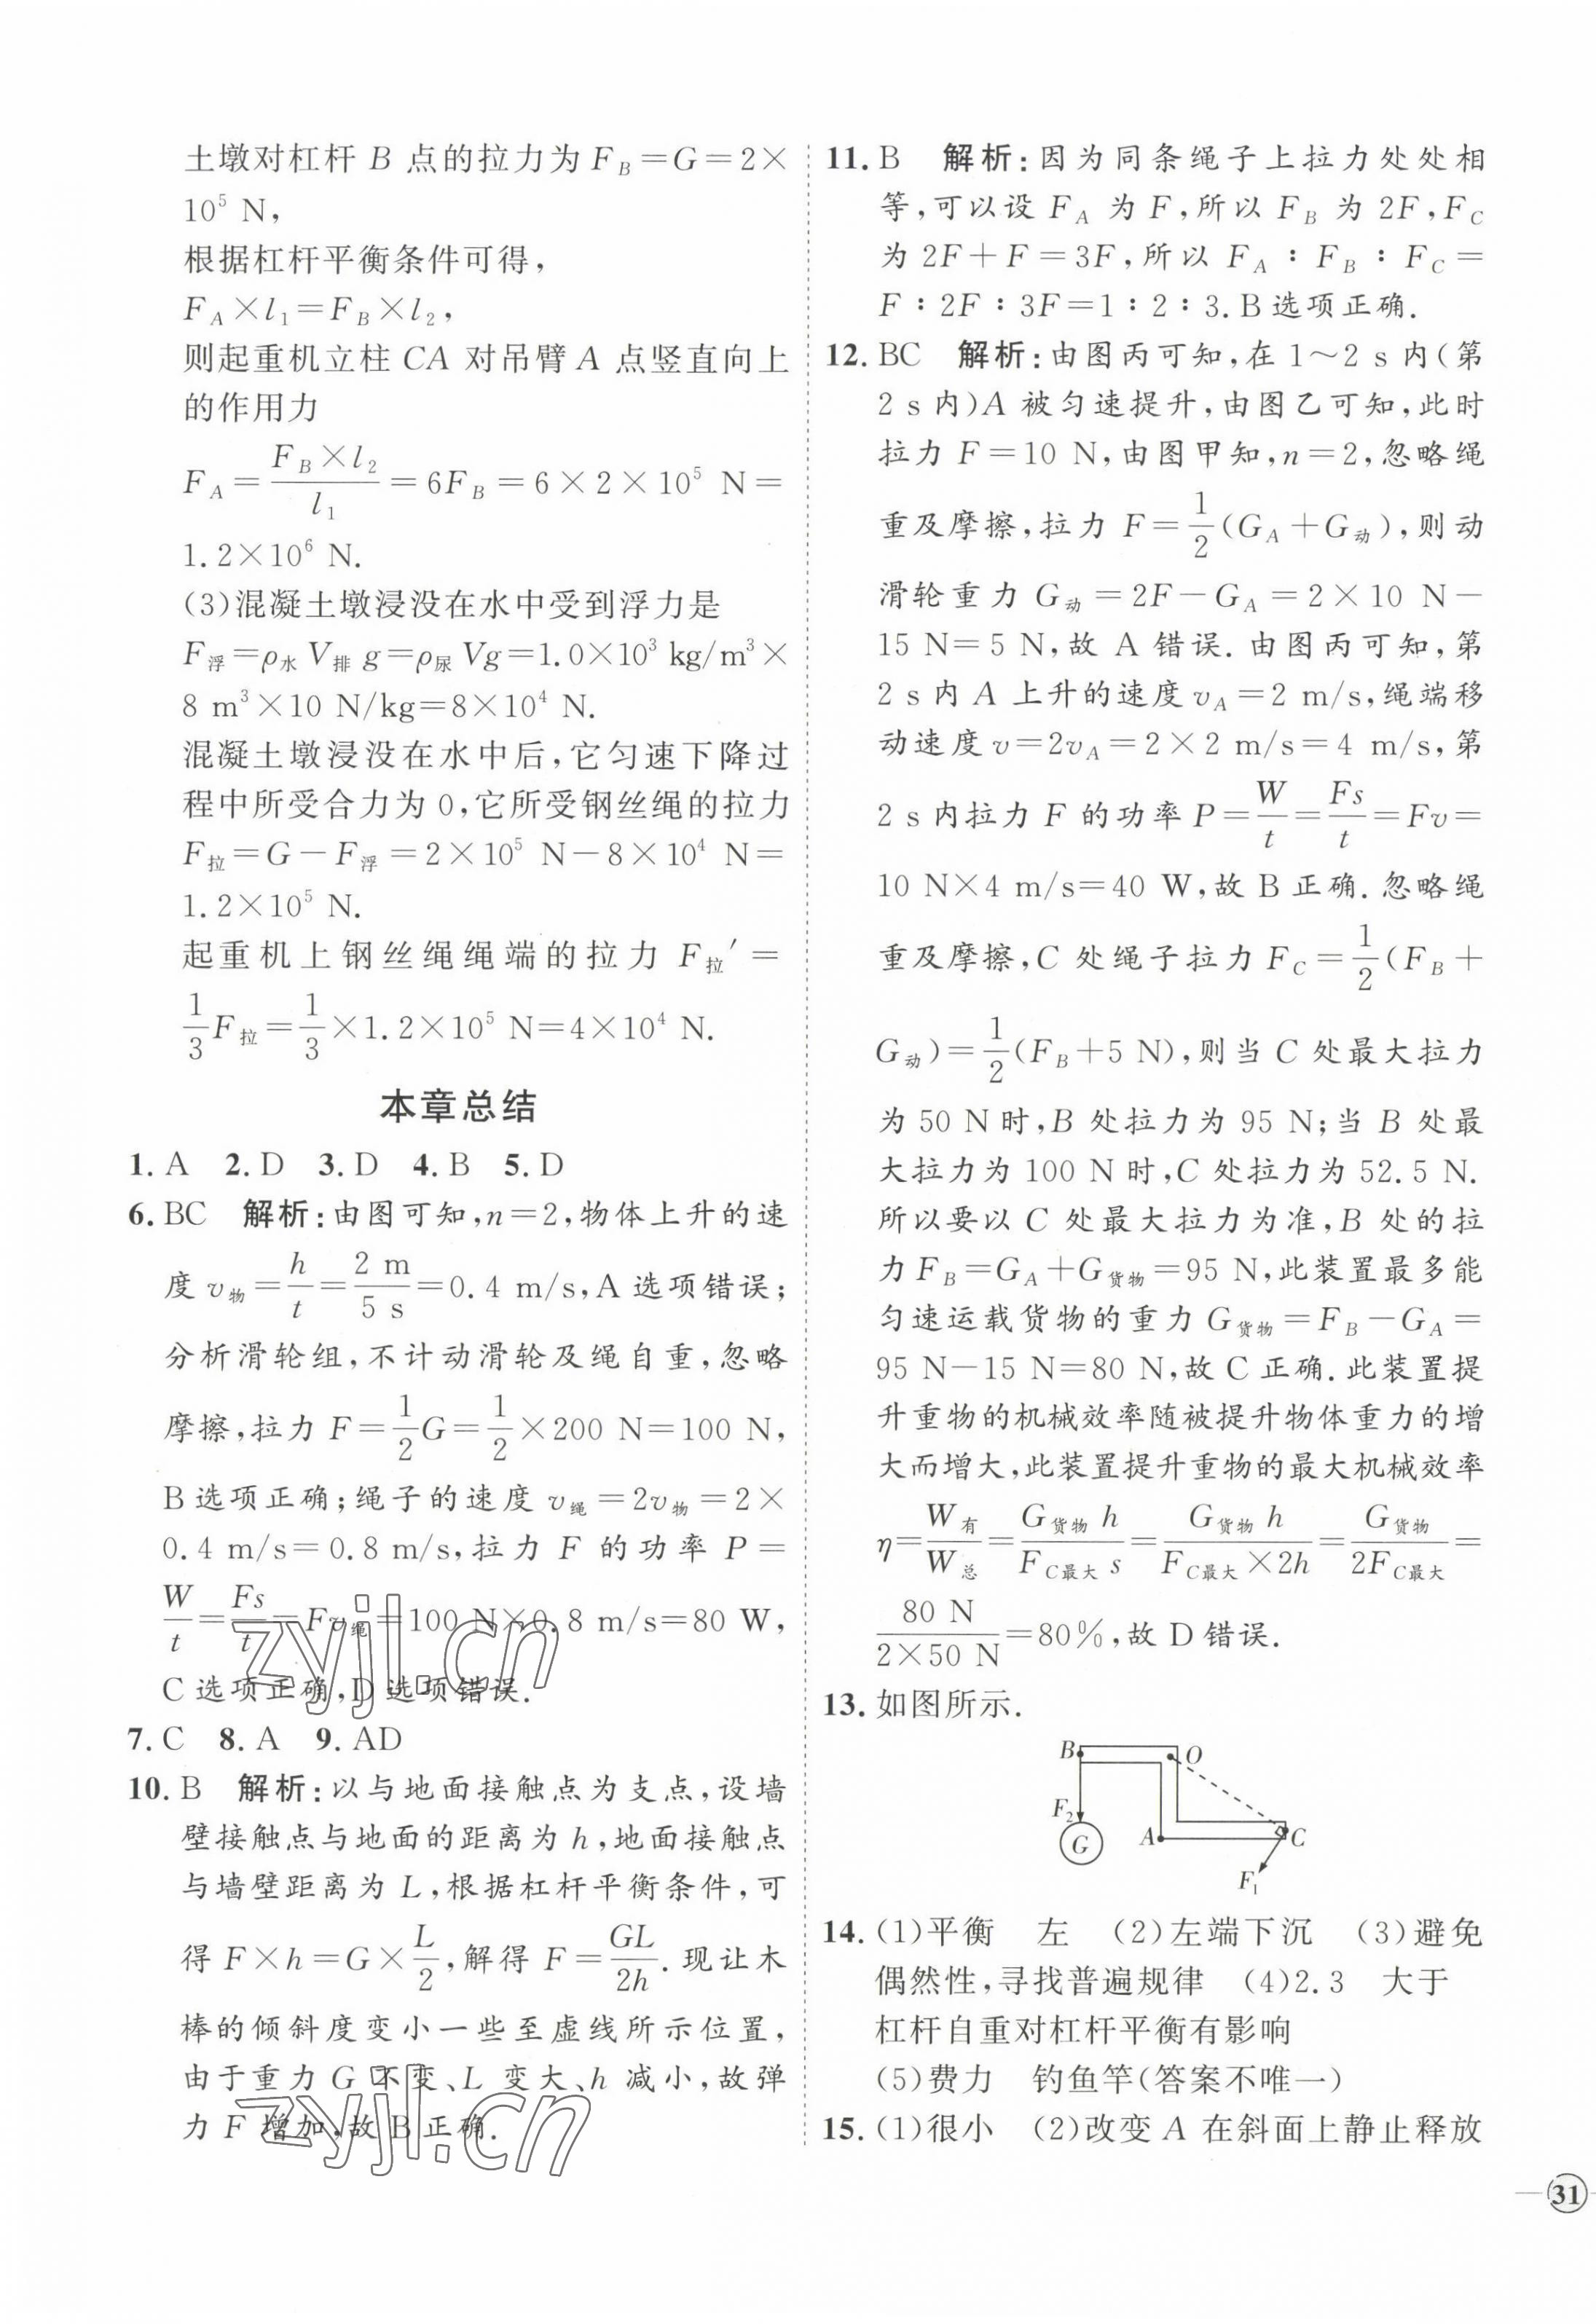 土墩对杠杆 B 点的拉力为 F_B=G=2×
10⁵ N,
根据杠杆平衡条件可得,
F_A×l₁=F_B×l₂,
则起重机立柱 CA 对吊臂 A 点竖直向上
的作用力
F_A=(F_B×l₂)/l₁=6F_B=6×2×10⁵ N=
1.2×10⁶ N.
(3)混凝土墩浸没在水中受到浮力是
F浮=ρ水 V排 g=ρ尿 Vg=1.0×10³ kg/m³×
8 m³×10 N/kg=8×10⁴ N.
混凝土墩浸没在水中后,它匀速下降过
程中所受合力为 0,它所受钢丝绳的拉力
F拉=G-F浮=2×10⁵ N-8×10⁴ N=
1.2×10⁵ N.
起重机上钢丝绳绳端的拉力 F拉′=
1/3 F拉=1/3×1.2×10⁵ N=4×10⁴ N.
本章总结
1. A 2. D 3. D 4. B 5. D
6. BC 解析:由图可知,n=2,物体上升的速
度 v物=h/t=2 m/5 s=0.4 m/s,A 选项错误;
分析滑轮组,不计动滑轮及绳自重,忽略
摩擦,拉力 F=1/2 G=1/2×200 N=100 N,
B 选项正确;绳子的速度 v绳=2v物=2×
0.4 m/s=0.8 m/s,拉力 F 的功率 P=
W/t=Fs/t=Fv绳=100 N×0.8 m/s=80 W,
C 选项正确,D 选项错误.
7. C 8. A 9. AD
10. B 解析:以与地面接触点为支点,设墙
壁接触点与地面的距离为 h,地面接触点
与墙壁距离为 L,根据杠杆平衡条件,可
得 F×h=G×L/2,解得 F=GL/2h.现让木
棒的倾斜度变小一些至虚线所示位置,
由于重力 G 不变、L 变大、h 减小,故弹
力 F 增加,故 B 正确.
11. B 解析:因为同条绳子上拉力处处相
等,可以设 F_A 为 F,所以 F_B 为 2F,F_C
为 2F+F=3F,所以 F_A∶F_B∶F_C=
F∶2F∶3F=1∶2∶3. B 选项正确.
12. BC 解析:由图丙可知,在 1~2 s 内(第
2 s 内)A 被匀速提升,由图乙可知,此时
拉力 F=10 N,由图甲知,n=2,忽略绳
重及摩擦,拉力 F=1/2(G_A+G动),则动
滑轮重力 G动=2F-G_A=2×10 N-
15 N=5 N,故 A 错误.由图丙可知,第
2 s 内 A 上升的速度 v_A=2 m/s,绳端移
动速度 v=2v_A=2×2 m/s=4 m/s,第
2 s 内拉力 F 的功率 P=W/t=Fs/t=Fv=
10 N×4 m/s=40 W,故 B 正确.忽略绳
重及摩擦,C 处绳子拉力 F_C=1/2(F_B+
G动)=1/2(F_B+5 N),则当 C 处最大拉力
为 50 N 时,B 处拉力为 95 N;当 B 处最
大拉力为 100 N 时,C 处拉力为 52.5 N.
所以要以 C 处最大拉力为准,B 处的拉
力 F_B=G_A+G货物=95 N,此装置最多能
匀速运载货物的重力 G货物=F_B-G_A=
95 N-15 N=80 N,故 C 正确.此装置提
升重物的机械效率随被提升物体重力的增
大而增大,此装置提升重物的最大机械效率
η=W有/W总=G货物 h/F_C最大 s=G货物 h/F_C最大×2h=G货物/2F_C最大=
80 N/2×50 N=80%,故 D 错误.
13. 如图所示.
B O
F₂
G A C
F₁
14. (1)平衡 左 (2)左端下沉 (3)避免
偶然性,寻找普遍规律 (4)2.3 大于
杠杆自重对杠杆平衡有影响
(5)费力 钓鱼竿(答案不唯一)
15. (1)很小 (2)改变 A 在斜面上静止释放
31
zyjl.cn
zyjl.cn